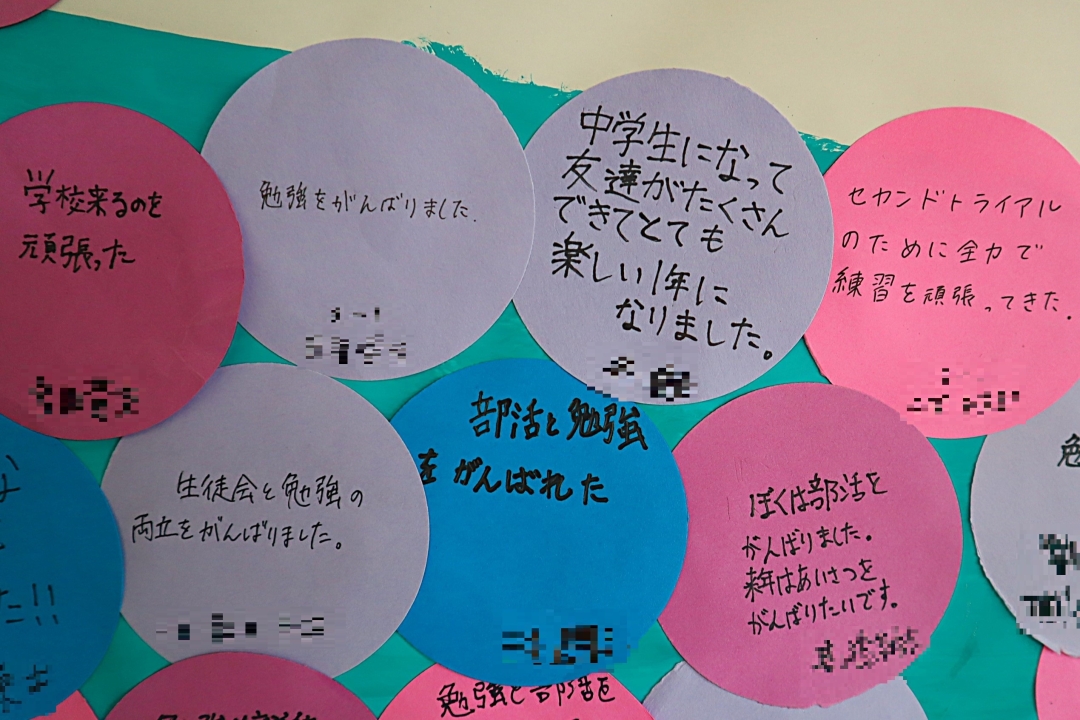 学校来るのを
頑張った
勉強をがんばりました.
中学生になって
友達がたくさん
できてとても
楽しい1年に
なりました。
セカンドトライアル
のために全力で
練習を頑張ってきた.
生徒会と勉強の
両立をがんばりました。
部活と勉強
をがんばれた
ぼくは部活を
がんばりました。
来年はあいさつを
がんばりたいです。
勉
た!!
勉強と部活を